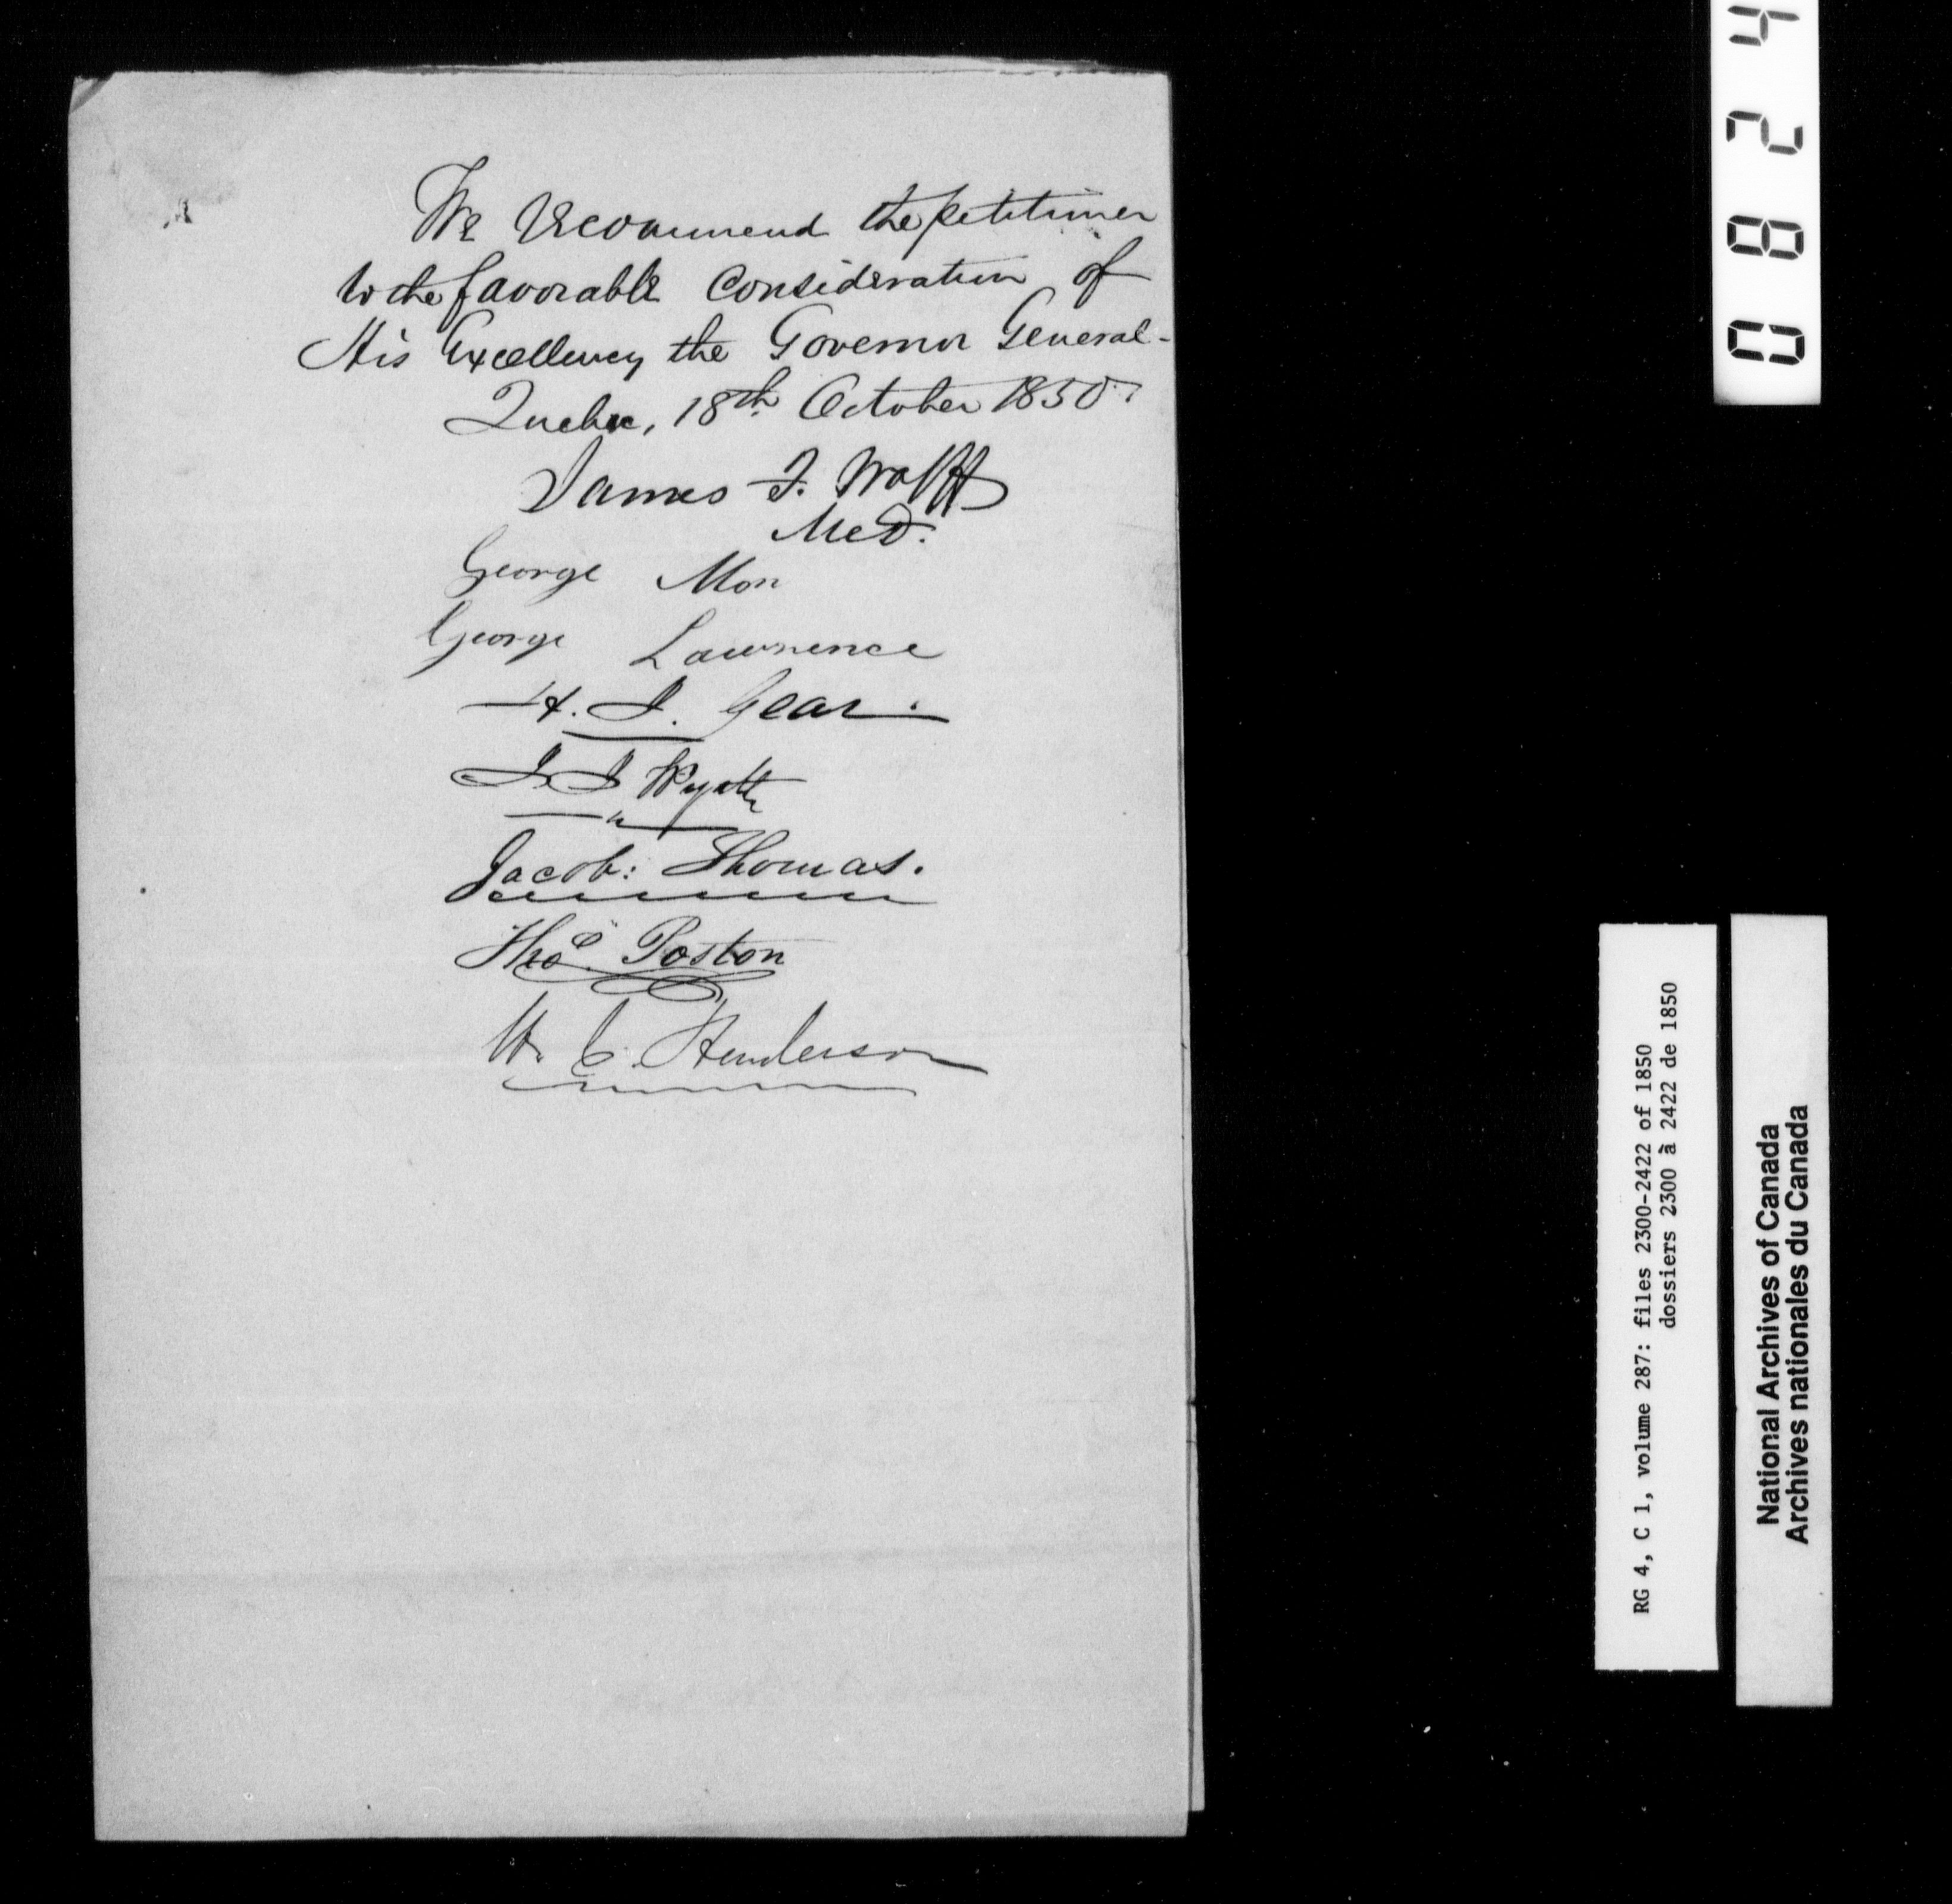 We Recommend the petitioner
to the favorable Consideration of
His Excellency the Governor General-
Quebec, 18th October 1850.
James F. Wolff
Med.
George Mon
George Lawrence
H. J. Gear.
J. J. Wyatt
Jacob: Thomas.
Thos Poston
W. C. Henderson
0 8 2 4
RG 4, C 1, volume 287: files 2300-2422 of 1850
dossiers 2300 à 2422 de 1850
National Archives of Canada
Archives nationales du Canada